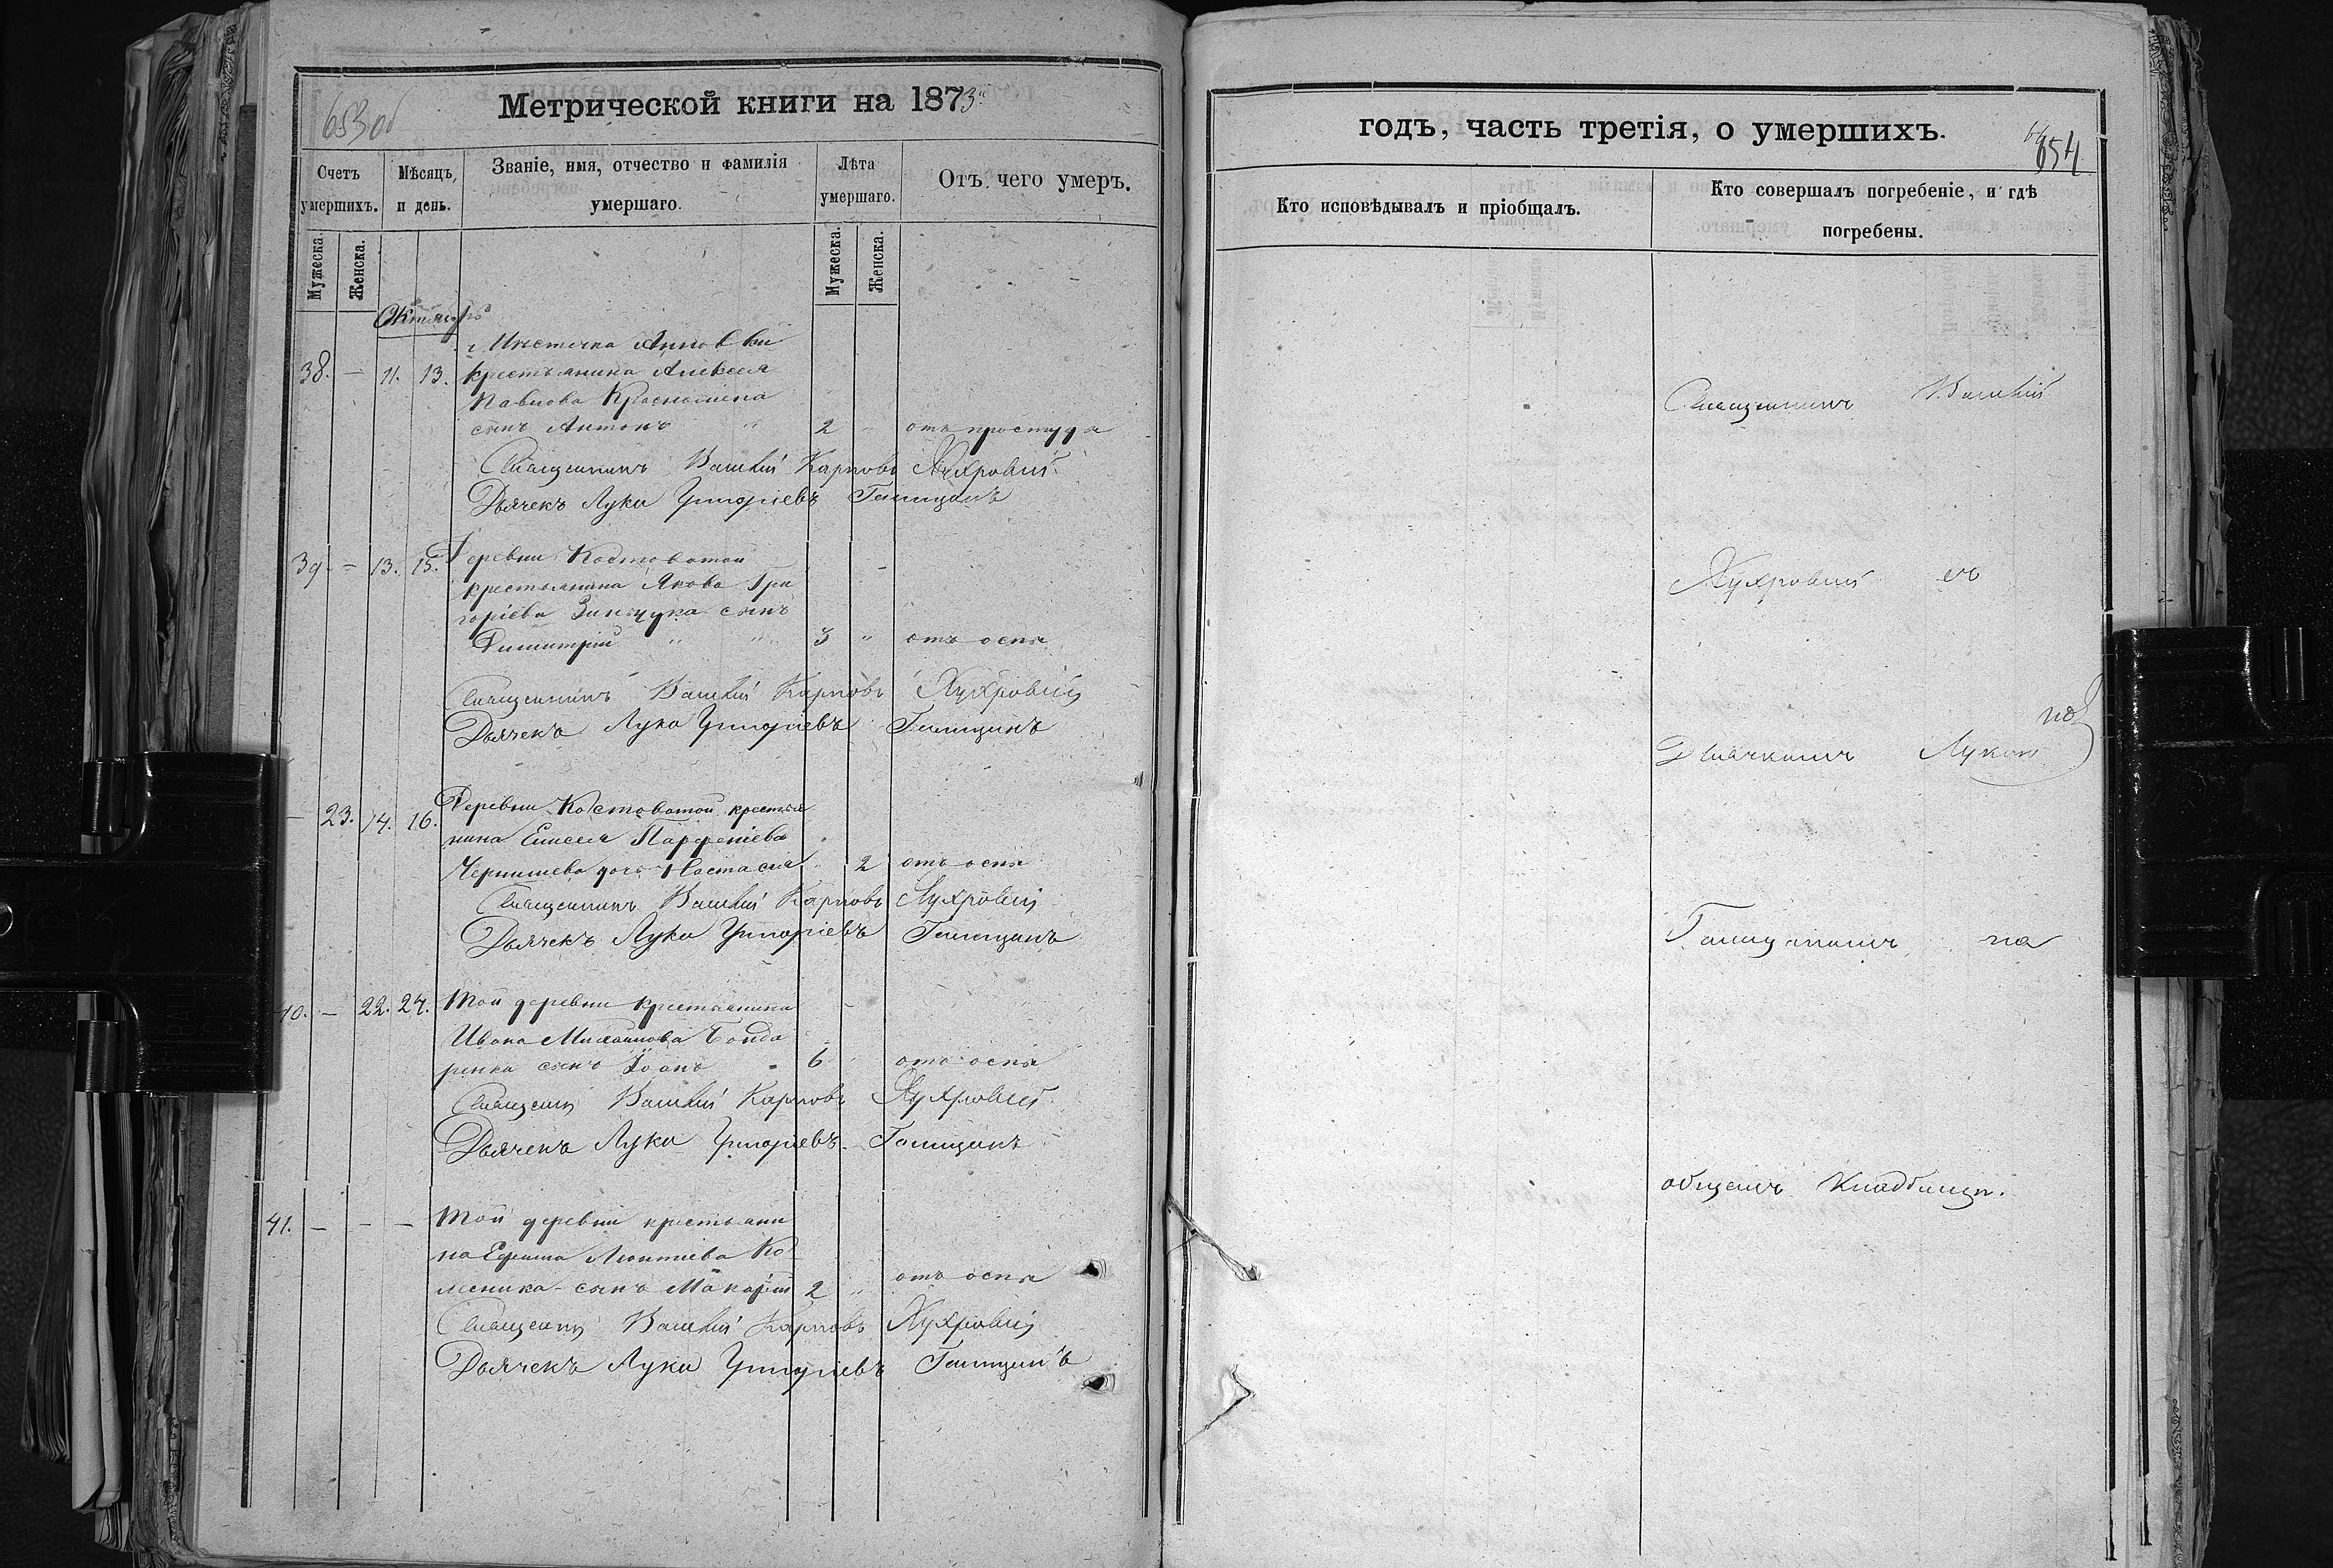 653об
Метрической книги на 1873й
Счетъ умершихъ.
Мѣсяцъ, и день.
Званіе, имя, отчество и фамилія умершаго.
Лѣта умершаго.
Отъ чего умеръ.
Мужеска.
Женска.
Мужеска.
Женска.
Октябрь
Мѣстечка
38. — 11. 13. крестьянина Алексея
Павлова
сынъ Антонъ " 2 " отъ простуды
Священникъ Василій Карповъ
Дьячекъ Лука Григоріевъ Галицынъ
39 - - 13. 15. Деревни Костоватой
крестьянина Якова Гри
горіева Зинчука сынъ
Димитрій " " 3 " отъ оспы
Священникъ Василій Карповъ
Дьячекъ Лука Григоріевъ Галицынъ
— 23. 14. 16. Деревни Костоватой крестья
нина Елисея Парфеніева
Чернишева дочь Настасия " 2 отъ оспы
Священникъ Василій Карповъ
Дьячекъ Лука Григоріевъ Галицынъ
40. — 22. 24. Той деревни крестьянина
Ивана Михайлова Бонда
ренка сынъ Іоанъ 6 отъ оспы
Священникъ Василій Карповъ
Дьячекъ Лука Григоріевъ Галицынъ
41. — - — Той деревни крестьяни
на Ефима Леонтіева Ко
леника сынъ Макарій 2 " отъ оспы
Священникъ Василій Карповъ
Дьячекъ Лука Григоріевъ Галицынъ
годъ, часть третія, о умершихъ.
654
Кто исповѣдывалъ и пріобщалъ.
Кто совершалъ погребеніе, и гдѣ погребены.
Священникъ Василій
съ
Дьячкомъ Лукою
Галицынымъ на
общемъ кладбищѣ.